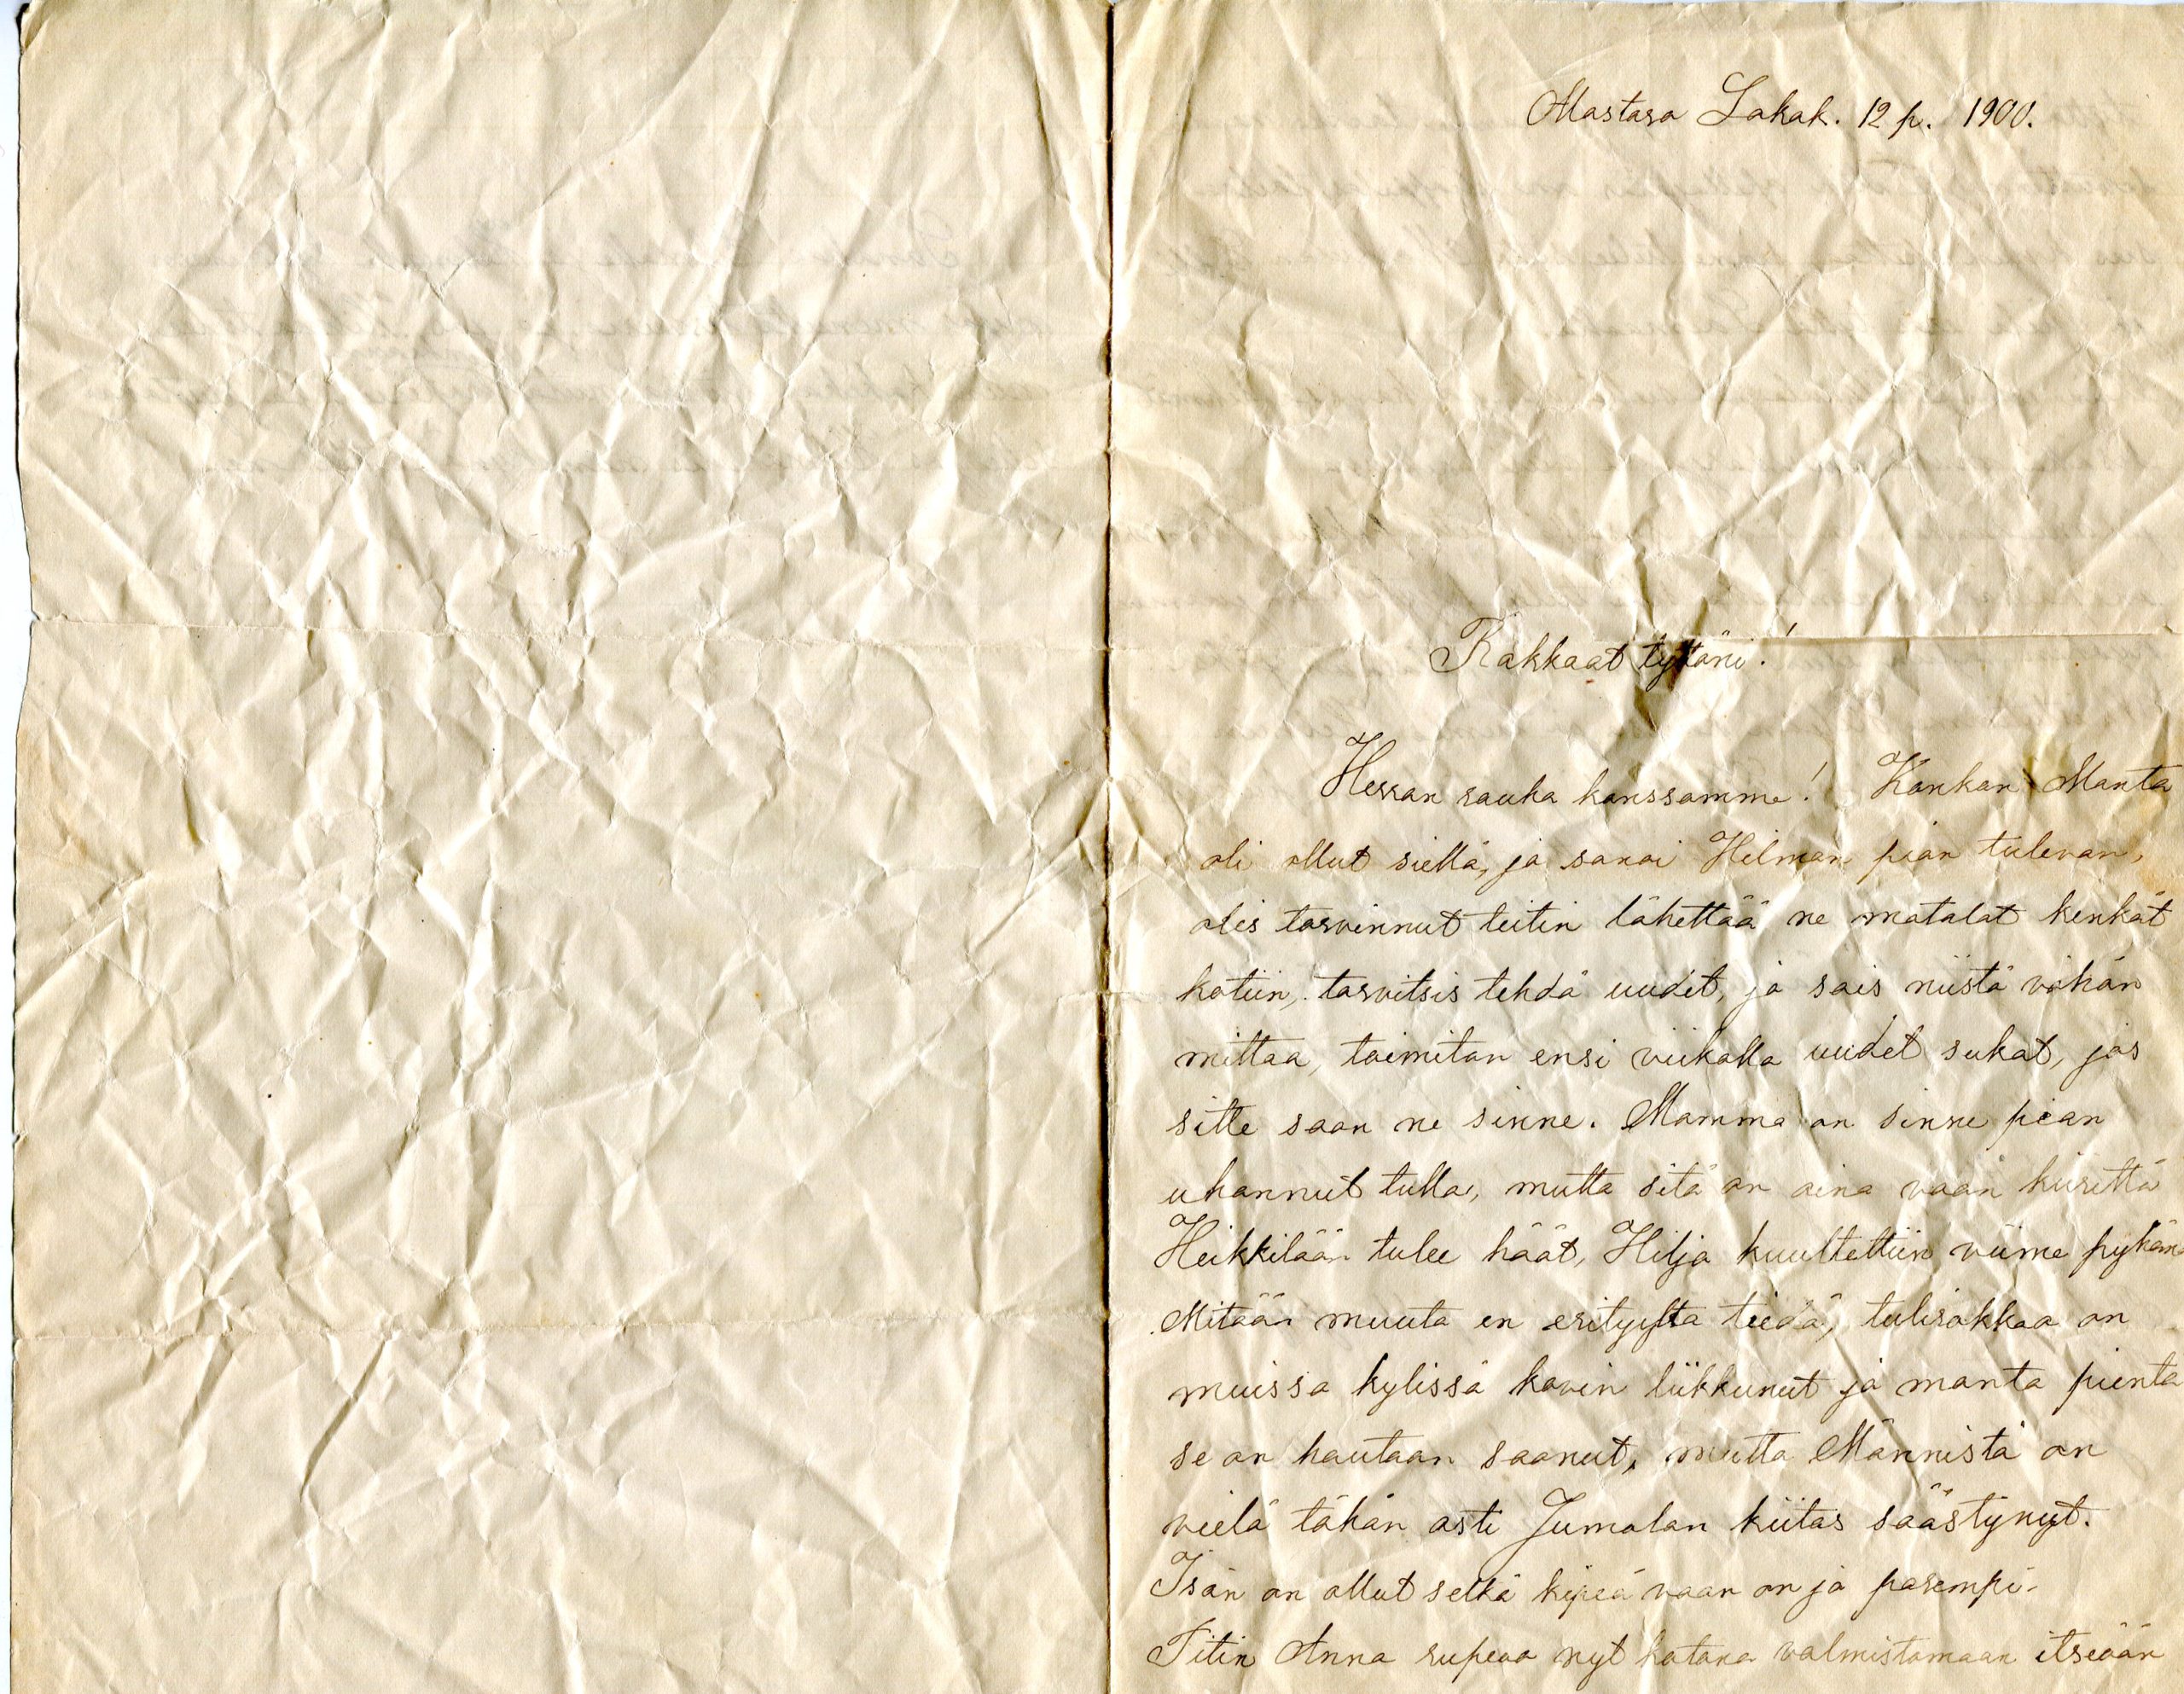 Mastara Lokak. 12 p. 1900.
Rakkaat tyttäni!
Herran rauha kanssamme! Konkan Manta
oli ollut siellä, ja sanoi Hilman pian tulevan,
olis tarvinnut teitin lähettää ne matalat kenkät
kotiin, tarvitsis tehdä uudet, ja sais niistä vähän
mittaa, toimitan ensi viikolla uudet sukat, jos
sitte saan ne sinne. Mamma on sinne pian
uhannut tulla, mutta sitä on aina vaan kiirettä
Heikkilään tulee häät, Hilja kuultettiin viime pyhänä
Mitään muuta en erityyltä tiedä, tulirokkoa on
muissa kylissä kovin liikkunut ja monta pientä
se on hautaan saanut, mutta Männistä on
vielä tähän asti Jumalan kiitos säästynyt.
Isän on ollut selkä kipeä vaan on jo parempi.
Titin Anna rupeaa nyt kotona valmistamaan itseään